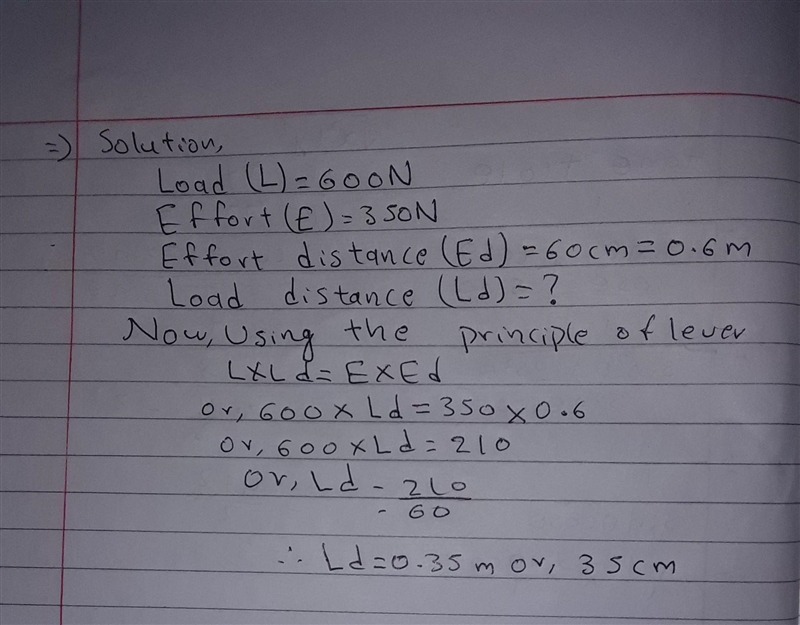 =) Solution,
Load (L) = 600N
Effort (E) = 350N
Effort distance (Ed) = 60cm = 0.6m
Load distance (Ld) = ?
Now, Using the principle of lever
L×Ld = E×Ed
or, 600 × Ld = 350 × 0.6
or, 600 × Ld = 210
or, Ld = 210/60
∴ Ld = 0.35 m or, 35cm